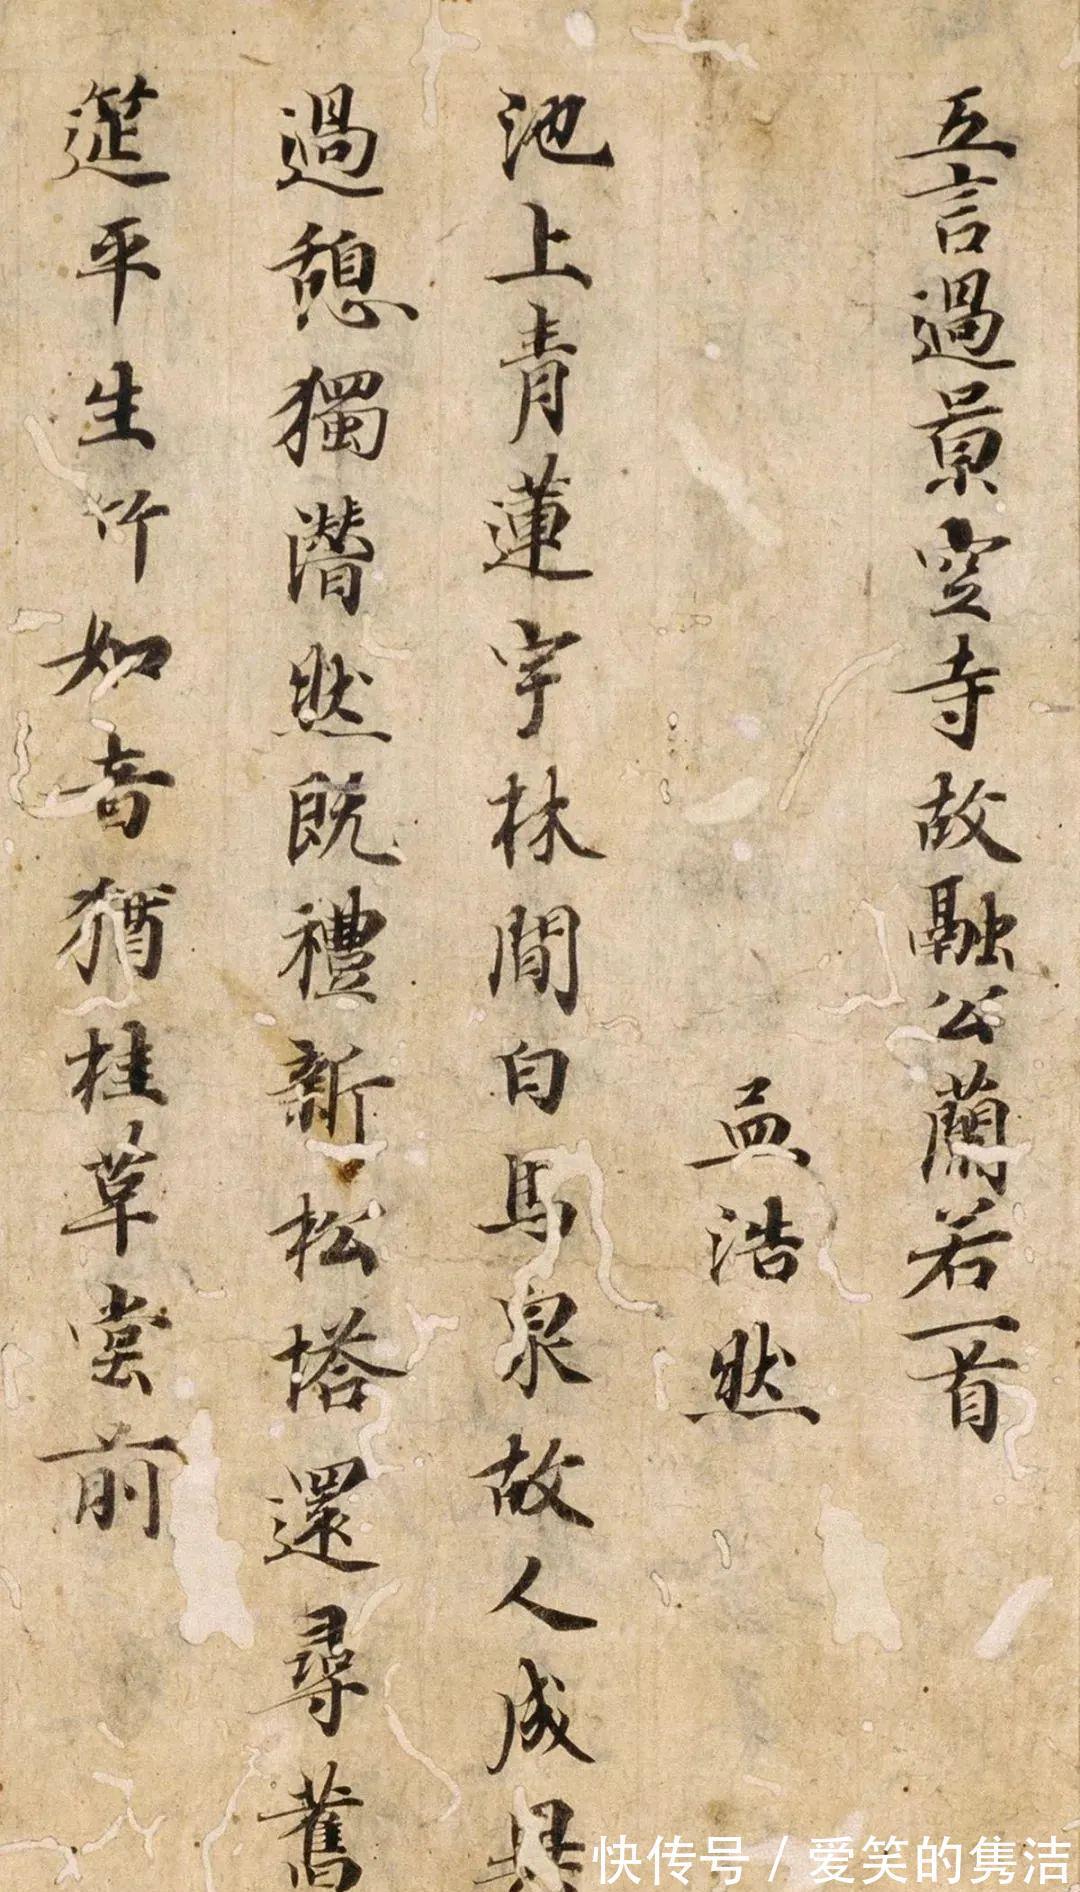 五言過景空寺故融公蘭若一首
孟浩然
池上青蓮宇林間白馬泉故人成異
過憩獨潸然既禮新松塔還尋舊
筵平生竹如意猶桂草堂前
快传号 / 爱笑的隽洁